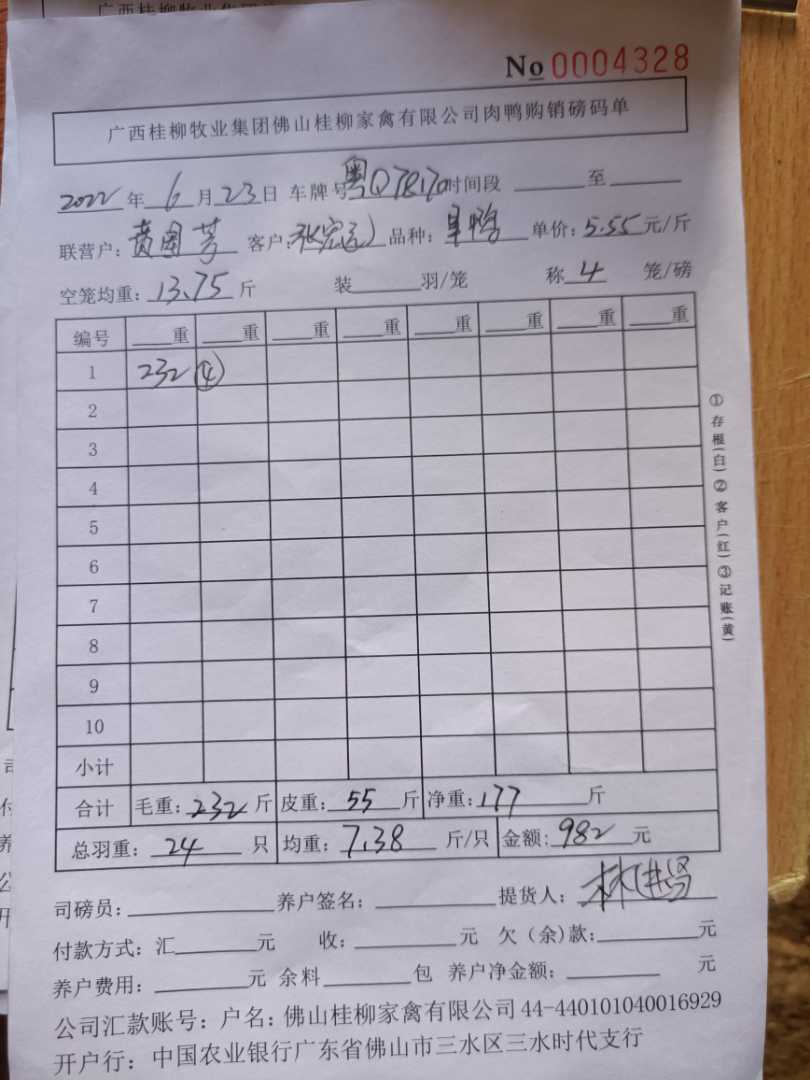 广西桂柳牧业集团
No 0004328
广西桂柳牧业集团佛山桂柳家禽有限公司肉鸭购销磅码单
2022年 6 月 23 日 车牌号 粤Q 时间段 至
联营户: 黄国芳 客户: 张宏 品种: 鸭 单价: 5.55 元/斤
空笼均重: 13.75 斤 装 羽/笼 称 4 笼/磅
编号 重 重 重 重 重 重 重 重
1 232 ④
2
3
4
5
6
7
8
9
10
小计
合计 毛重: 232 斤 皮重: 55 斤 净重: 177 斤
总羽重: 24 只 均重: 7.38 斤/只 金额: 982 元
司磅员: 养户签名: 提货人: 林进
付款方式: 汇 元 收: 元 欠（余）款: 元
养户费用: 元 余料 包 养户净金额: 元
公司汇款账号: 户名: 佛山桂柳家禽有限公司 44-440101040016929
开户行: 中国农业银行广东省佛山市三水区三水时代支行
①存根(白)②客户(红)③记账(黄)